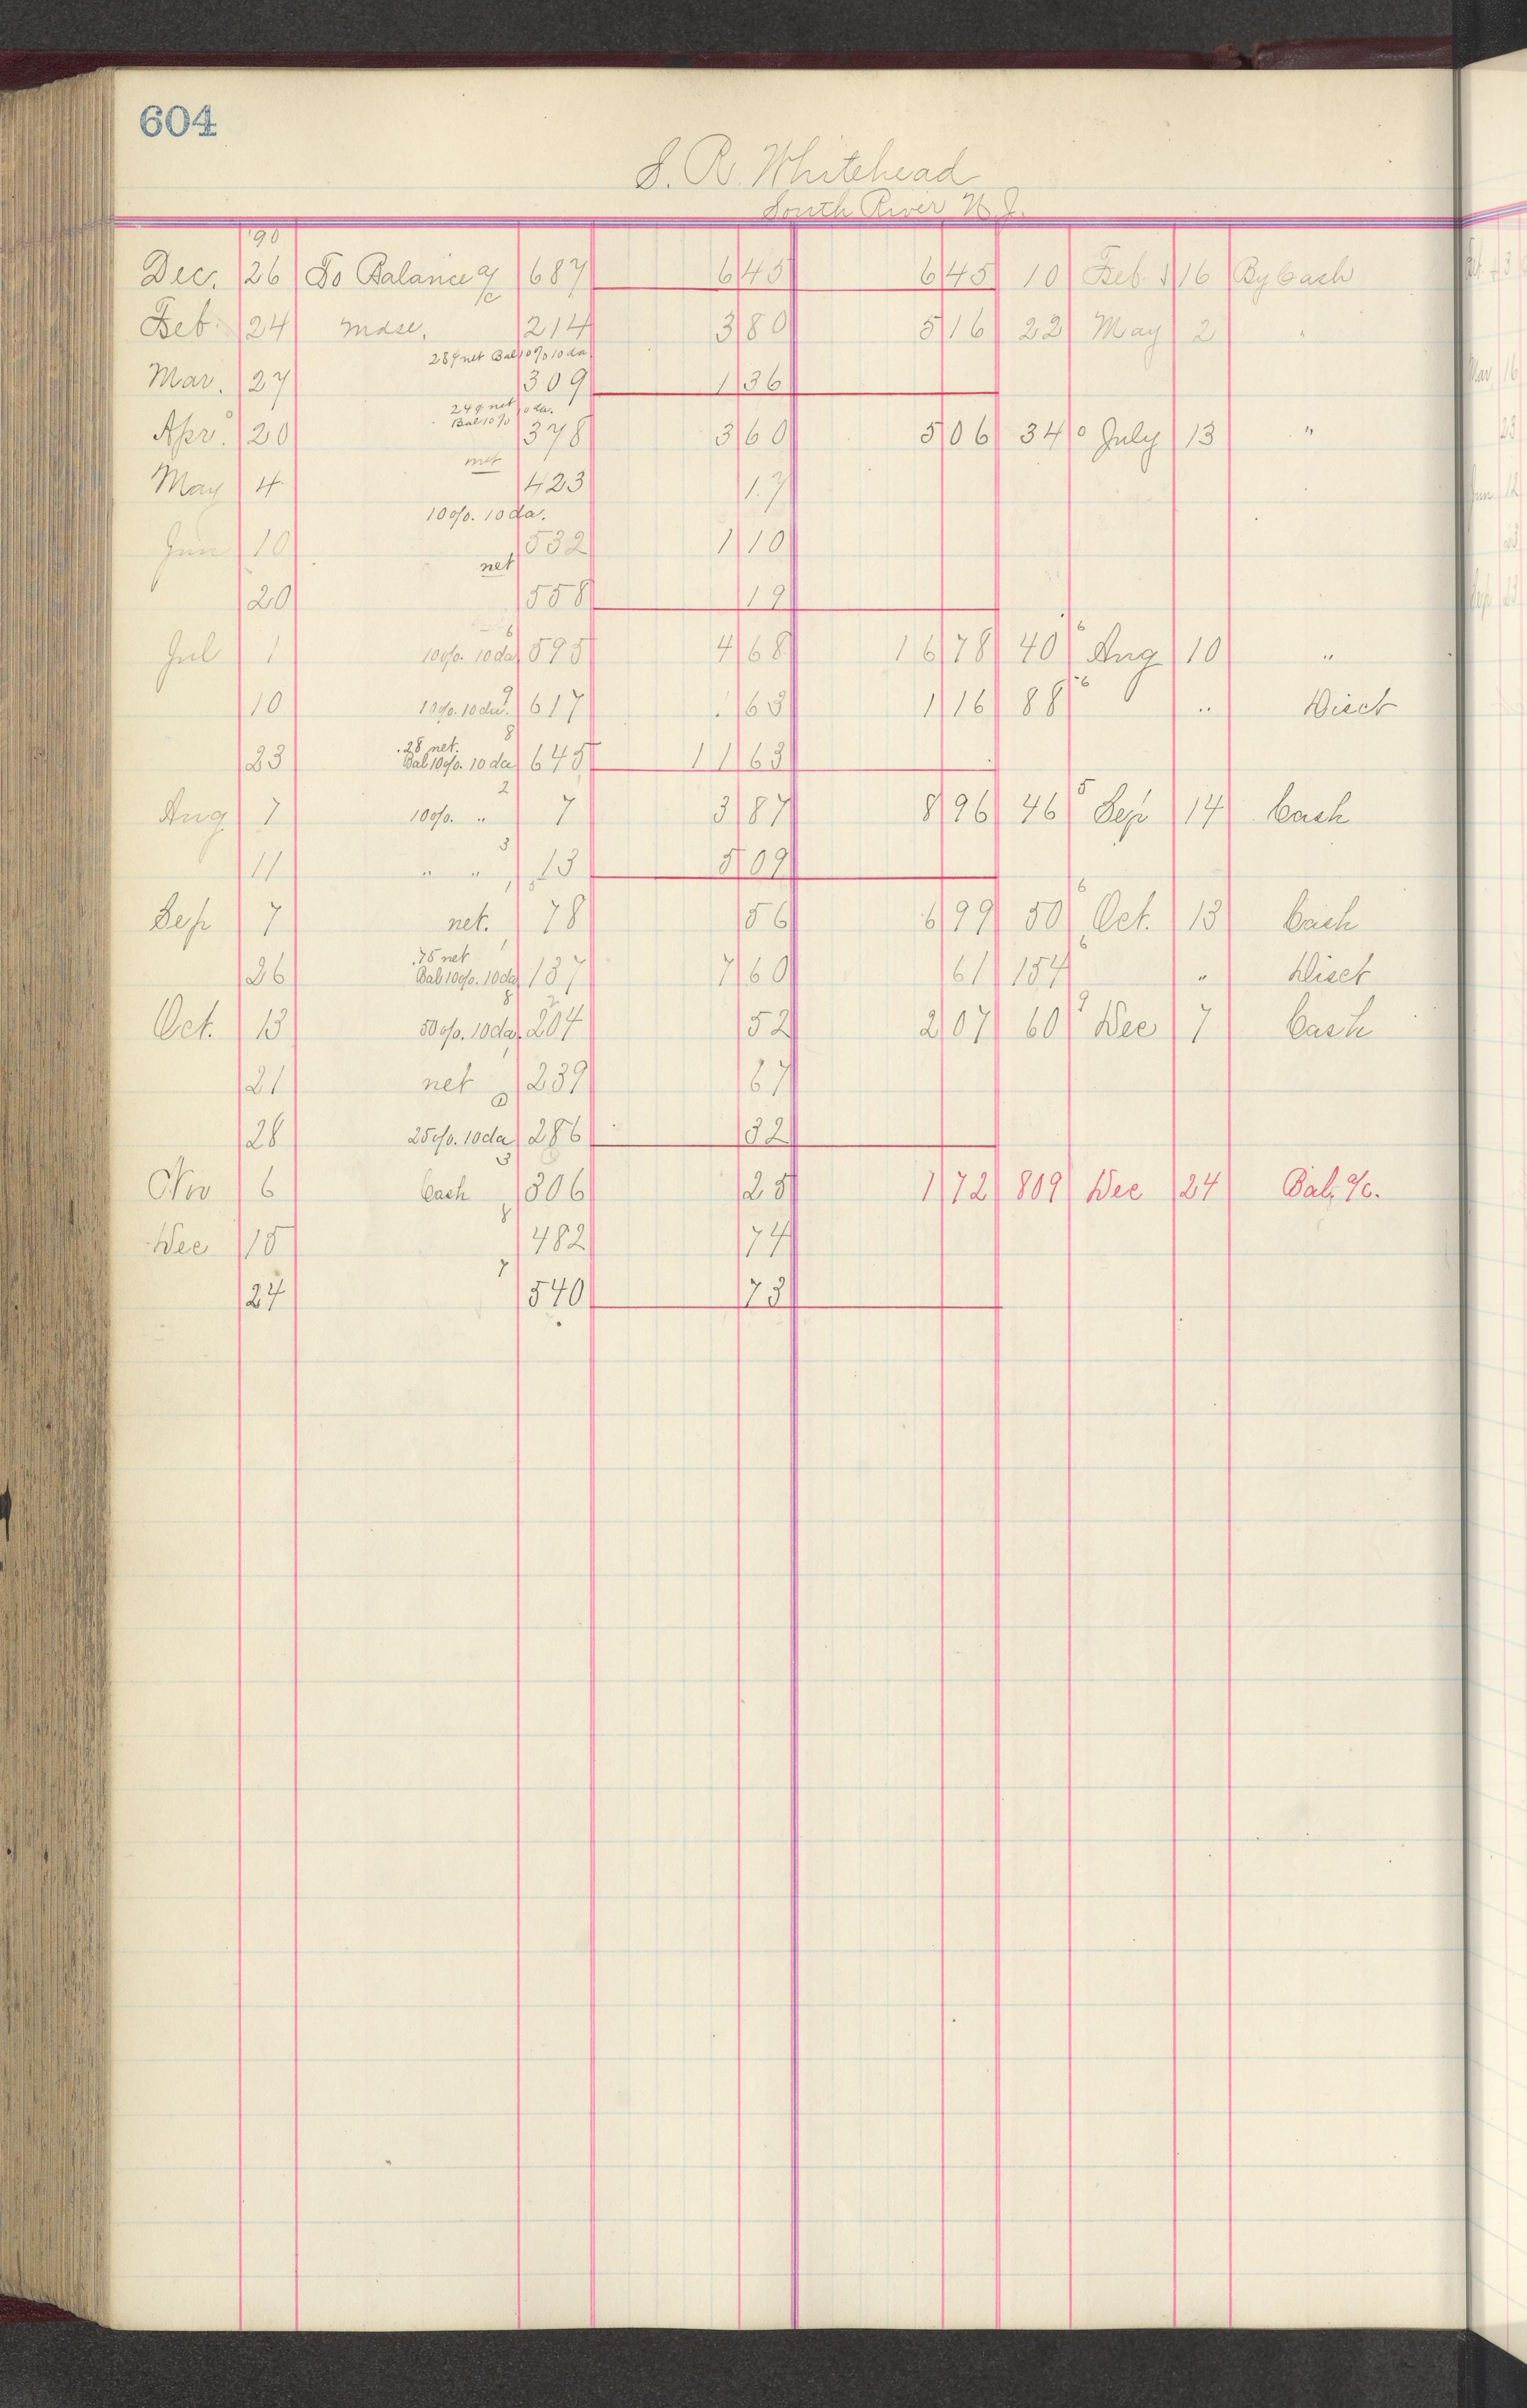 604
S. R. Whitehead
South River N. J.
'90
Dec. 26 To Balance a/c 687 6 45 6 45 10 Feb. 16 By Cash
Feb. 24 Mdse. 214 3 80 5 16 22 May 2 "
28¢ net Bal 10% 10 da.
Mar. 27 309 1 36
24¢ net 10 da.
Bal 10%
Apr. 20 378 3 60 5 06 34 July 13 "
net
May 4 423 1.7
10%. 10 da.
Jun 10 532 1 10
net
20 558 19
Jul 1 10%. 10 da 6 595 4 68 16 78 40 6 Aug 10 "
10 10%. 10 da. 9 617 63 1 16 88 6 " Disct
.28 net. 8
23 Bal 10%. 10 da 645 11 63
Aug 7 10%. " 2 7 3 87 8 96 46 5 Sep 14 Cash
11 " " 3 13 5 09
Sep 7 net. 1 78 56 6 99 50 6 Oct. 13 Cash
.75 net
26 Bal 10%. 10 da 1 137 7 60 61 154 6 " Disct
Oct. 13 50%. 10 da. 8 204 52 2 07 60 9 Dec 7 Cash
21 net 1 239 67
28 25%. 10 da 286 32
Nov 6 Cash 3 306 25 1 72 809 Dec 24 Bal. a/c.
Dec 15 8 482 74
24 7 540 73